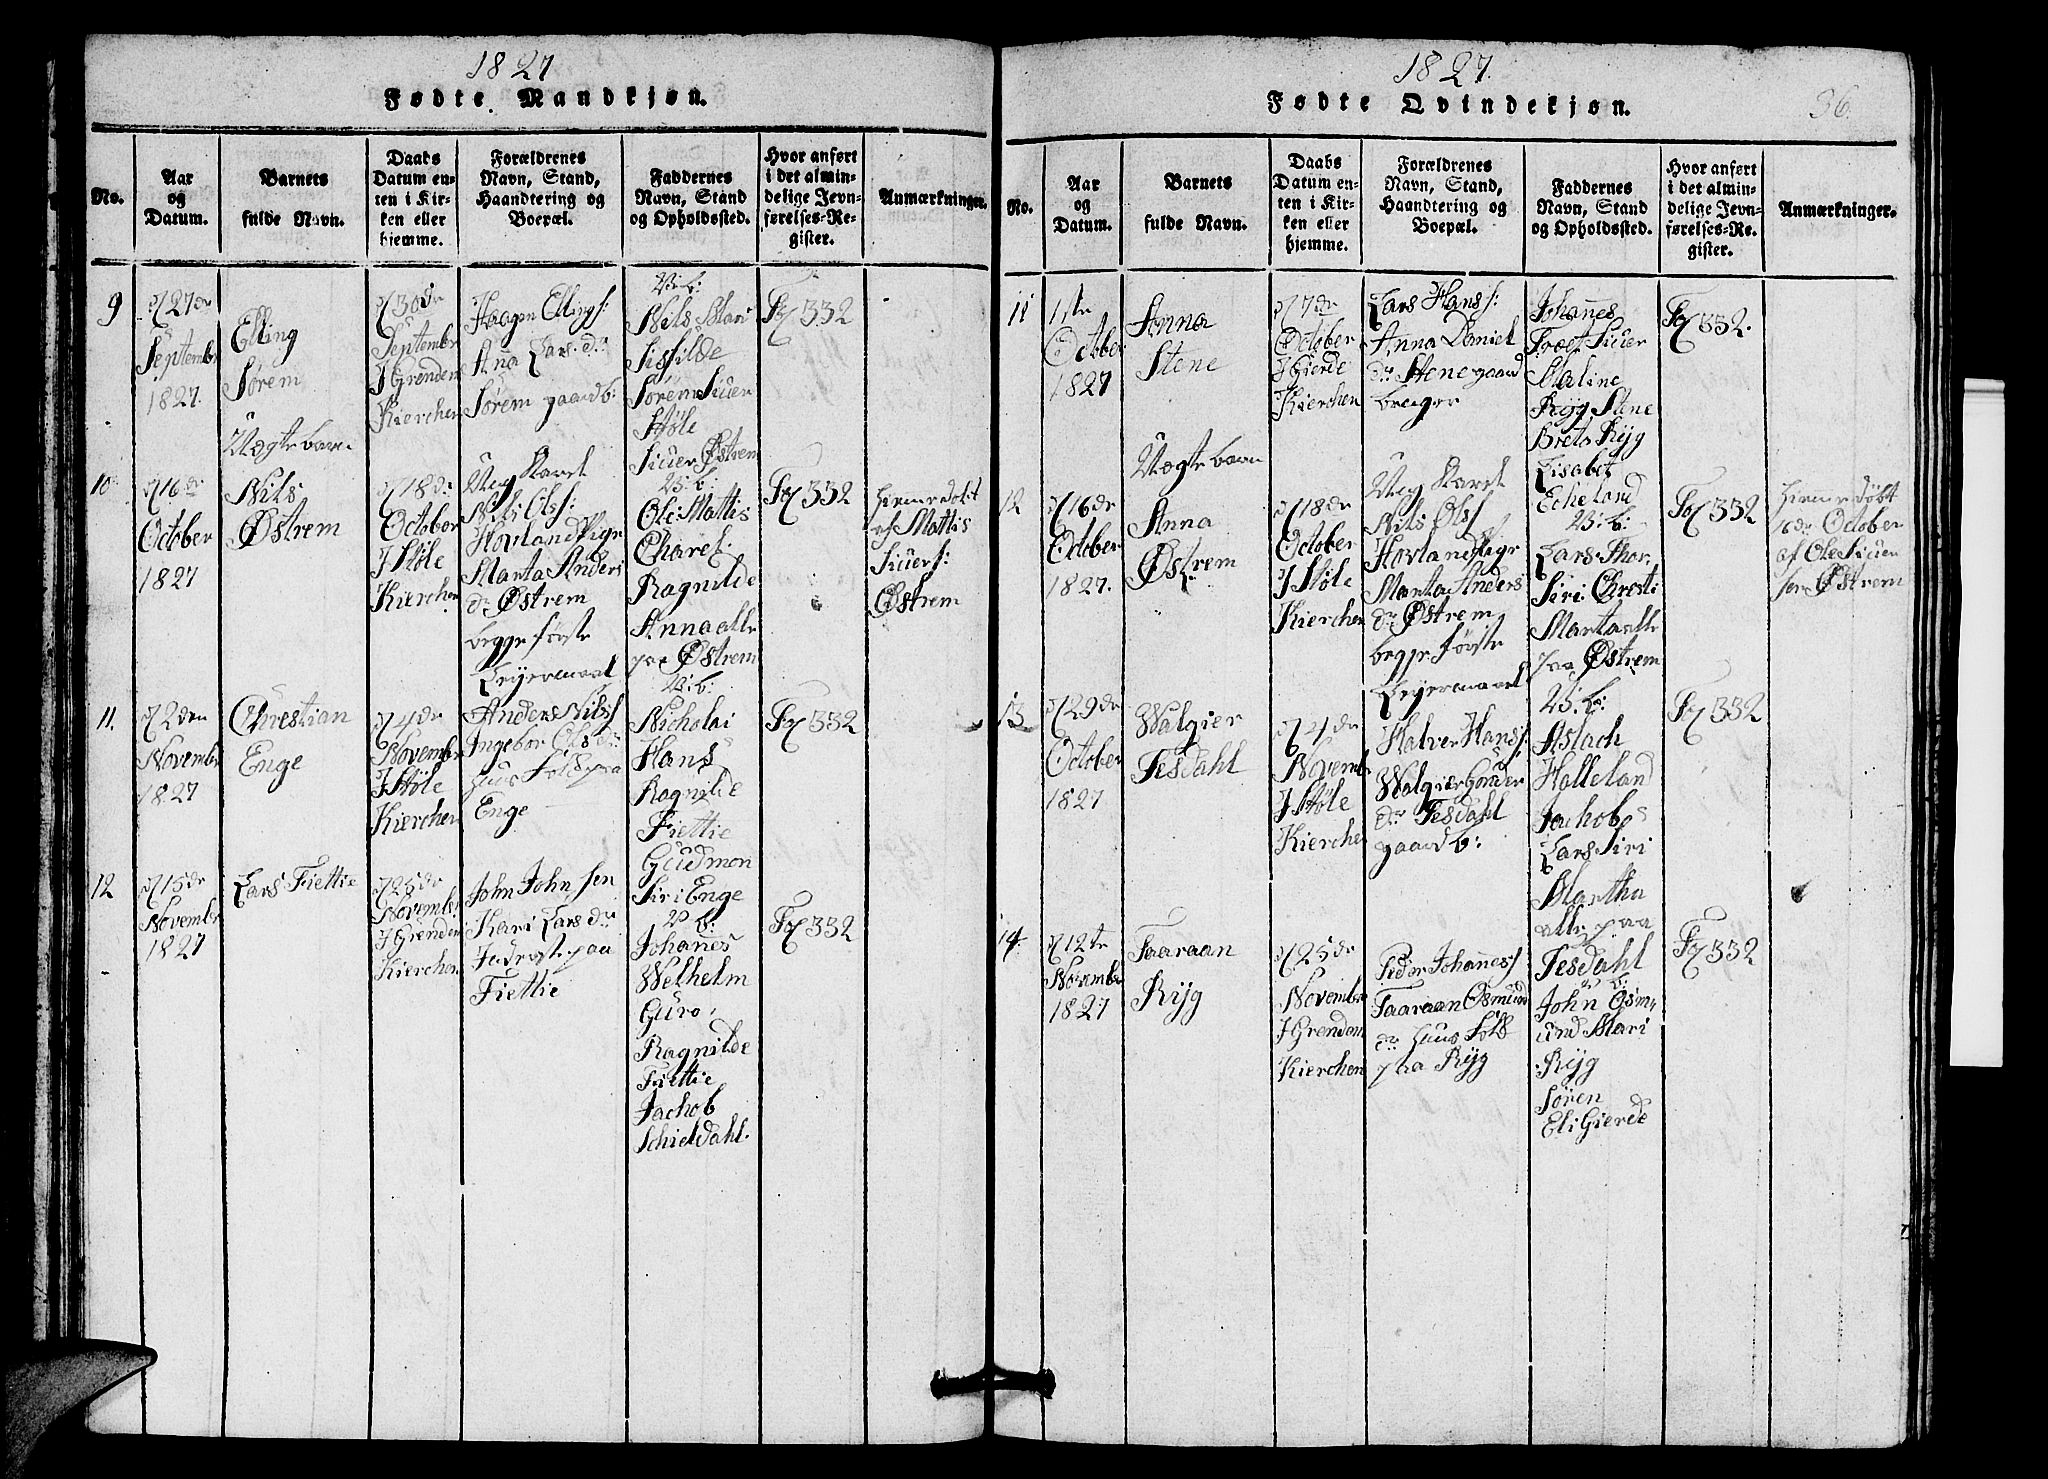 1827
Fødte Mandkjøn.
No.
Aar
og
Datum.
Barnets
fulde Navn.
Daabs
Datum en-
ten i Kir-
ken eller
hjemme.
Forældrenes
Navn, Stand,
Haandtering og
Boepæl.
Faddernes
Navn, Stand
og Opholdssted.
Hvor anført
i det almin-
delige Jevn-
førelses-Re-
gister.
Anmærkninger.
9
27de
Septembr
1827.
Elling
Sørem
30de
Septembr
I Grenden
Kierchen
Haagen Ellings:
Ana Lars. dr
Sørem gaardb:
V: b:
Nils Mari
Sissilde
Sørem Siuer
Støle
Siuer Østrem
332
10
16de
October
1827
Uægte barn
Nils
Østrem
18de
October
I Støle
Kierchen
Ung Karel
Nils Olss:
Hovland Pige
Marta Anders
dr Østrem
begge første
Leyermaal
V: b:
Ole Mattis
Charel.
Ragnilde
Anna alle
paa Østrem
332
hiemedøbt
af Mattis
Siuers:
Østrem
11.
2den
Novembr
1827
Chrestian
Enge
4de
Novembr
I Støle
Kierchen
Anders Nilss
Ingebor Olsdr
huus Folk paa
Enge
V: b:
Nicholai
Hans
Ragnilde
Fiettie
Gudmon
Siri Enge
332
12
15de
Novembr
1827
Lars Fiettie
25de
Novembr
I Grenden
Kierchen
John Johnsen
Kari Larsdr
Inderst paa
Fiettie
V b:
Johanes
Welhelm
Guro,
Ragnilde
Fiettie
Jachob
Schieldahl.
332
1827.
Fødte Qvindekjøn.
36
No.
Aar
og
Datum.
Barnets
fulde Navn.
Daabs
Datum en-
ten i Kir-
ken eller
hjemme.
Forældrenes
Navn, Stand,
Haandtering og
Boepæl.
Faddernes
Navn, Stand
og Opholdssted.
Hvor anført
i det almin-
delige Jevn-
førelses-Re-
gister.
Anmærkninger.
11
1ste
October
1827
Anna
Stene
7de
October
I Gierde
Kierchen
Lars Hanss:
Anna Daniel
dr Stene gaard
bruger
Johanes
Træet Siuer
Maline
Ryg Stene
Breta Ryg
Lisabet
Echeland
332.
12
16de
October
1827.
Uægte barn
Anna
Østrem
18de
October
I Støle
Kierchen
Ung Karel
Nils Olss
Hovland Pige
Marta Anders
dr Østrem
begge første
Leyermaal
V: b:
Lars Thor.
Siri Chresti
Marta alle
paa Østrem
332
hiemedøbt
16de October
af Ole Siuer
sen Østrem
13
29de
October
1827
Walgier
Tesdahl
4de
Novemb
I Støle
Kierchen
Halver Hanss:
Walgier Gunder
dr Tesdahl
gaard b:
V: b:
Aslach
Halleland
Jachob
Lars Siri
Martha
alle paa
Tesdahl
332
14
12te
Novembr
1827
Taaraan
Ryg
25de
Novembr
I Grenden
Kierchen
Peder Johaness
Taaraan Osmund
dr huus Folk
paa Ryg
V b:
John Osm-
und Mari
Ryg
Søren
Eli Gierde
332